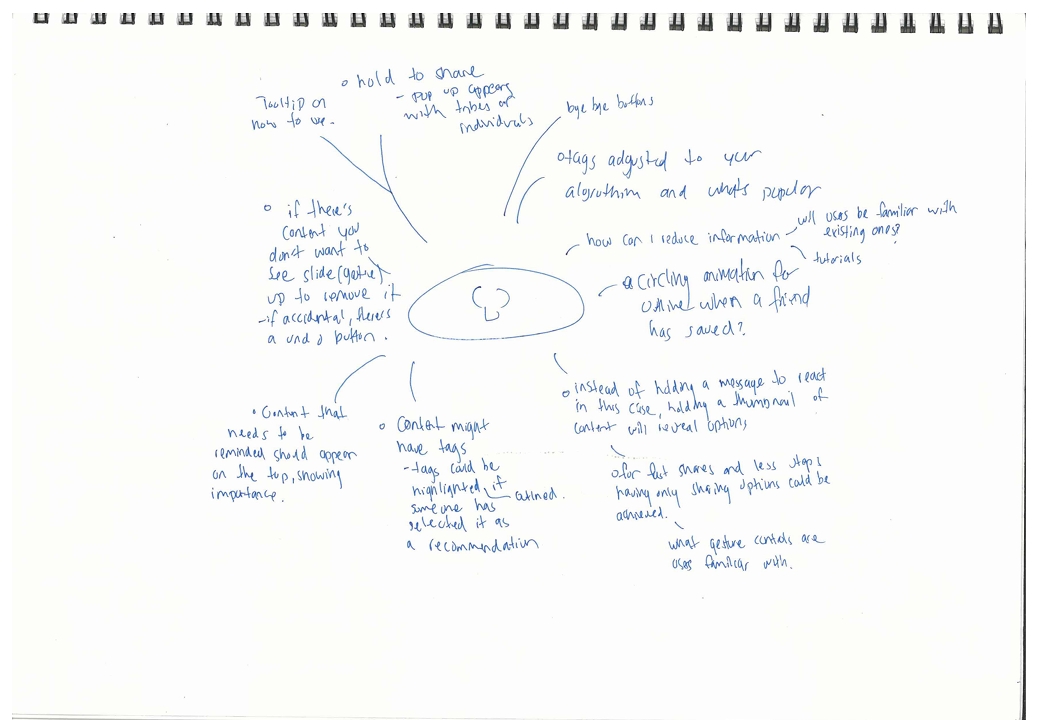 Tooltip on
how to use.
hold to share
- pop up appears
with tribes or
individuals
bye bye buttons
tags adjusted to your
algorithm and whats popular
how can I reduce information
will users be familiar with
existing ones?
tutorials
circling animation for
outline when a friend
has saved?
if there's
content you
don't want to
see slide (gesture)
up to remove it
- if accidental, there's
a undo button.
instead of holding a message to react
in this case, holding a thumbnail of
content will reveal options
for fast shares and less steps
having only sharing options could be
achieved.
what gesture controls are
users familiar with.
Content that
needs to be
reminded should appear
on the top, showing
importance.
Content might
have tags
- tags could be
highlighted if
outlined.
someone has
selected it as
a recommendation